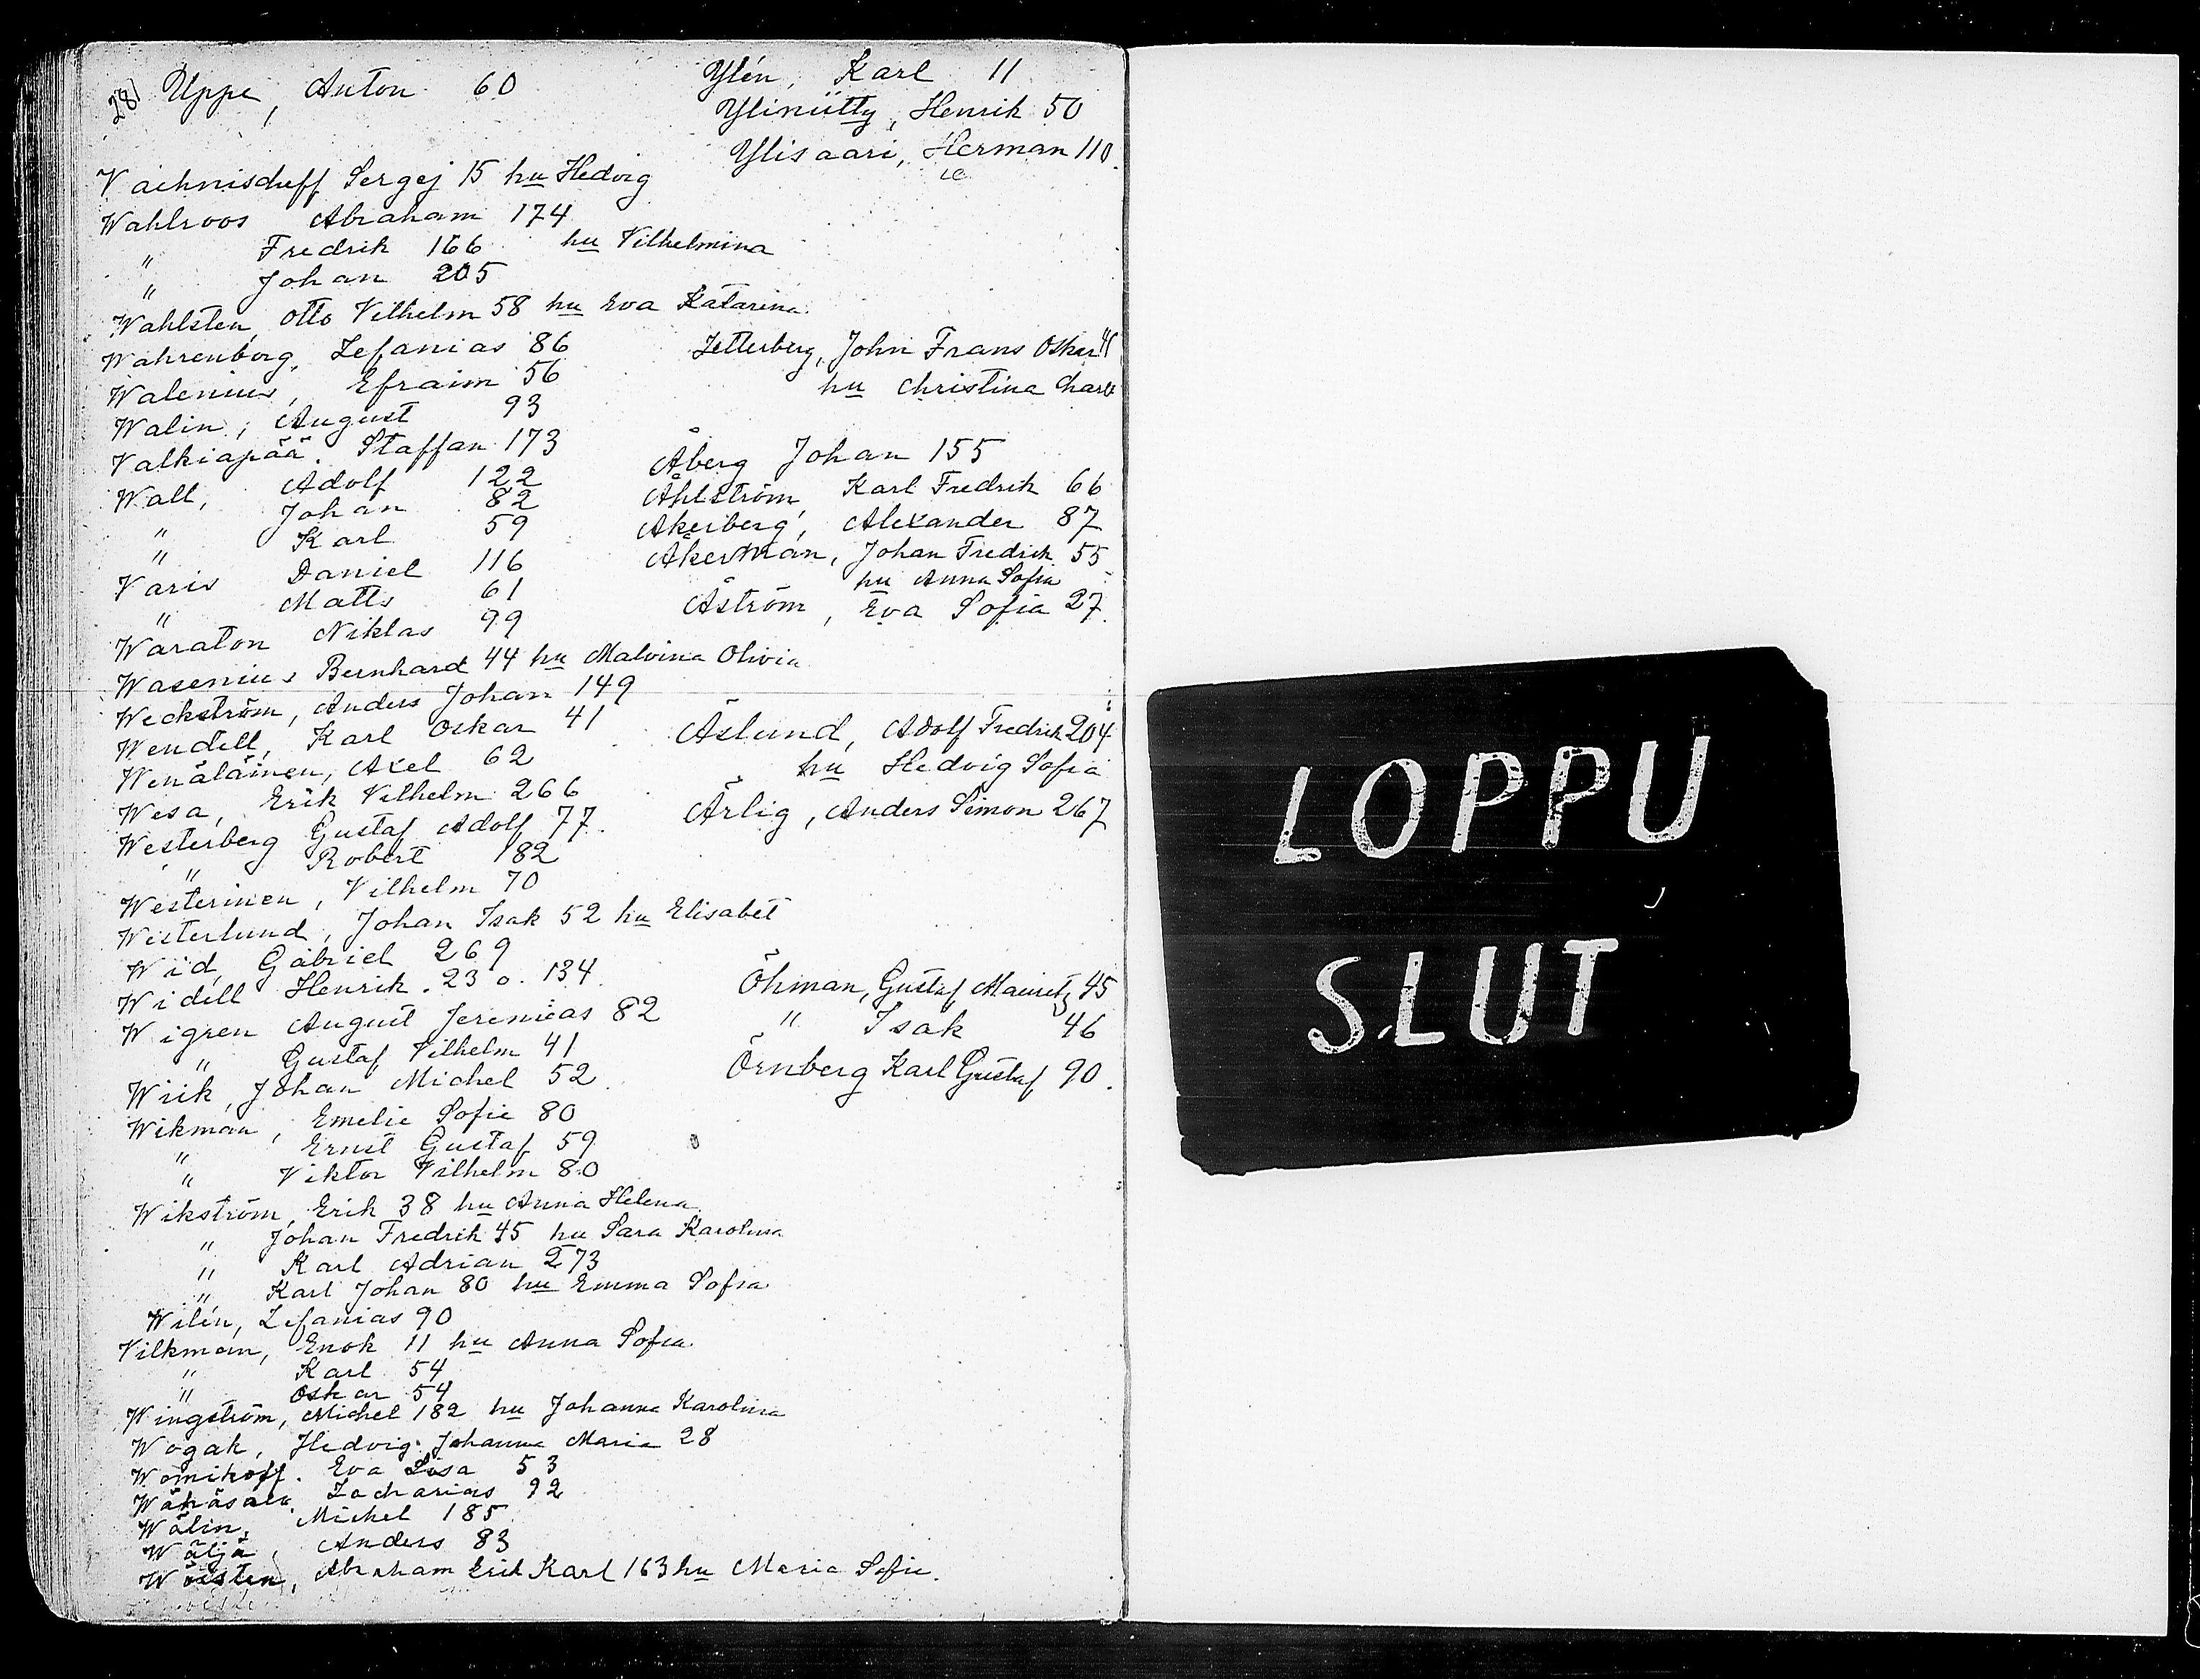 281
Uppe, Anton 60
Vachnischeff Sergej 15 hu Hedvig
Wahlroos Abraham 174
" Fredrik 166 hu Vilhelmina
" Johan 205
Wahlsten, Otto Vilhelm 58 hu Eva Katarina
Wahrenborg, Zefanias 86
Walenius, Efraim 56
Walin, August 93
Valkiapää. Staffan 173
Wall, Adolf 122
" Johan 82
" Karl 59
Varis Daniel 116
" Matts 61
Waraton Niklas 99
Wasenius Bernhard 44 hu Malvina Olivia
Weckström, Anders Johan 149
Wendell, Karl Oskar 41
Wenäläinen, Axel 62
Wesa, Erik Vilhelm 266
Westerberg Gustaf Adolf 77.
" Robert 182
Westerinen, Vilhelm 70
Westerlund, Johan Isak 52 hu Elisabet
Wid, Gabriel 269
Widell Henrik. 23 o. 134.
Wigren August Jeremias 82
" Gustaf Vilhelm 41
Wiik, Johan Michel 52.
Wikman, Emelie Sofie 80
" Ernst Gustaf 59
" Viktor Vilhelm 80
Wikström, Erik 38 hu Anna Helena
" Johan Fredrik 45 hu Sara Karolina
" Karl Adrian 273
" Karl Johan 80 hu Emma Sofia
Wilén, Zefanias 90
Vilkman, Enok 11 hu Anna Sofia
" Karl 54
" Oskar 54
Wingström, Michel 182 hu Johanna Karolina
Wogak, Hedvig Johanna Maria 28
Womikoff. Eva Lisa 53
Wähäsalo Zacharias 92
Wälin, Michel 185
Wäljä, Anders 83
Wössten, Abraham Erik Karl 163 hu Maria Sofie.
Ylén, Karl 11
Yliniitty, Henrik 50
Ylisaari, Herman 110.
Zetterberg, John Frans Oskar
hu Christina Charl
Åberg Johan 155
Åhlström, Karl Fredrik 66
Åkerberg, Alexander 87
Åkerman, Johan Fredrik 55
hu Anna Sofia
Åström, Eva Sofia 27.
Äslund, Adolf Fredrik 204
hu Hedvig Sofia
Ärlig, Anders Simon 267
Öhman, Gustaf Mauritz 45
" Isak 46
Örnberg Karl Gustaf 90.
LOPPU
SLUT